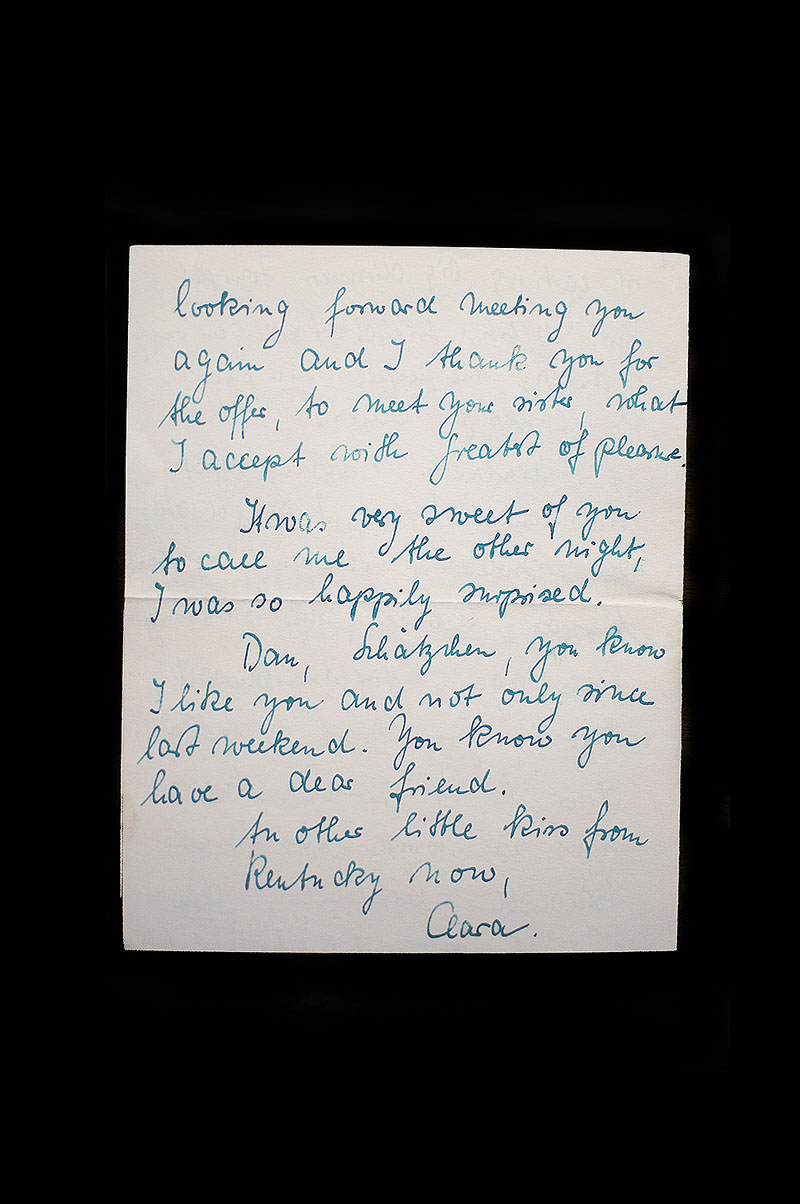 looking forward meeting you
again and I thank you for
the offer, to meet your sister, what
I accept with greatest of pleasure.
It was very sweet of you
to call me the other night,
I was so happily surprised.
Dan, Schätzchen, you know
I like you and not only since
last weekend. You know you
have a dear friend.
An other little kiss from
Kentucky now,
Clara.